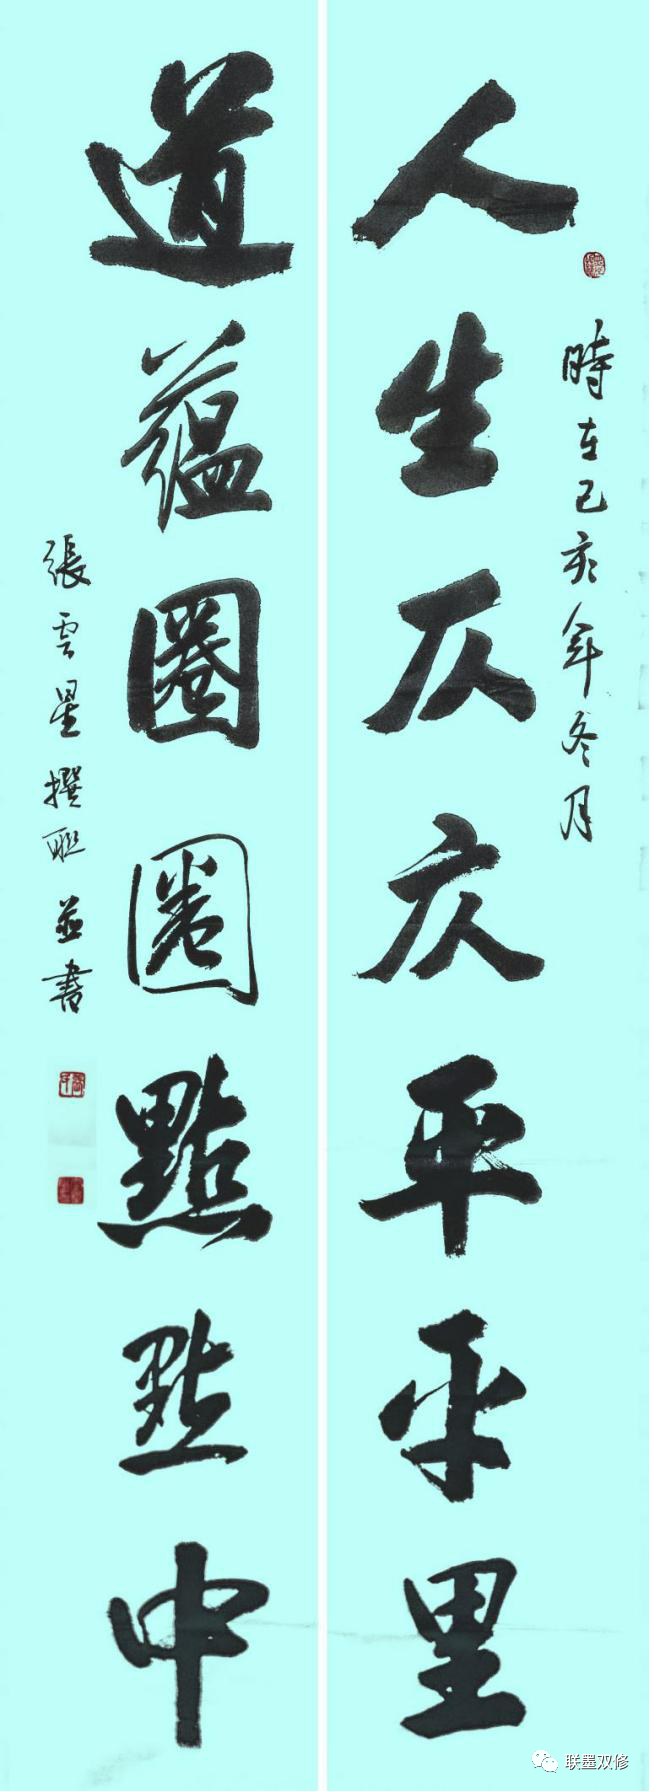 時在己亥年冬月
人生仄庂平平里
道藴圈圈點點中
張雲星撰联並書
联墨双修